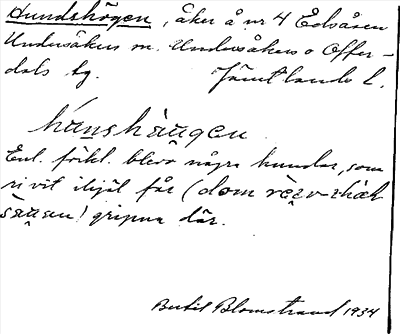 Hundshögen, åker å nr 4 Edsåsen
Undersåkers sn. Undersåkers o Offer-
dals tg. Jämtlands l.
hùnshä̀ugen
Enl. förkl. blevo några hundar, som
rivit ihjäl får (dom
gripna där.
Bertil Blomstrand 1934